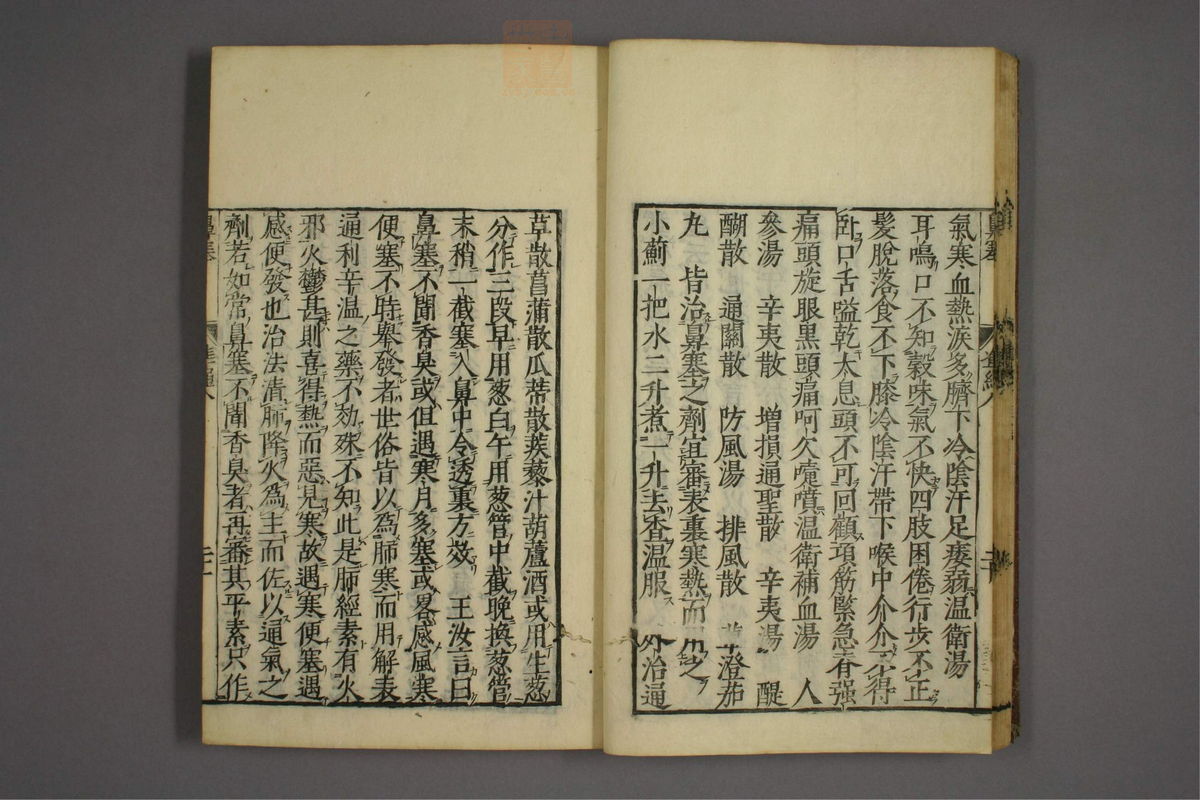 氣寒血熱淚多臍下冷陰汗足痿弱温衛湯
耳鳴口不知穀味氣不快四肢困倦行步不正
髮脫落食不下膝冷陰汗帶下喉中介介不得
卧口舌嗌乾太息頭不可回顧項筋緊急脊强
痛頭旋眼黒頭痛呵欠嚏噴温衛補血湯 人
參湯 辛夷散 増損通聖散 辛夷湯 醍
醐散 通關散 防風湯 排風散 蓽澄茄
丸 皆治鼻塞之劑宜審表裏寒熱而用之
小薊一把水二升煮一升去査温服 外治通
草散菖蒲散瓜蒂散蒺藜汁葫蘆酒或用生葱
分作三段早用葱白午用葱管中截晚換葱管
末稍一截塞入鼻中令透裏方效 王汝言曰
鼻塞不聞香臭或但遇寒月多塞或畧感風寒
便塞不時舉發者世俗皆以爲肺寒而用解表
通利辛温之藥不効殊不知此是肺經素有火
邪火鬱甚則喜得熱而惡見寒故遇寒便塞遇
感便發也治法清肺降火爲主而佐以通氣之
劑若如常鼻塞不聞香臭者再審其平素只作
鼻塞